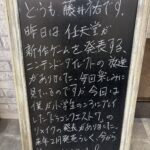 どうも藤井佑です。
昨日は任天堂が
新作ゲームを発表する、
ニンテンドーダイレクトの放送
がありました。毎回楽しみに
見るのですが今回は
僕が小学生のころにプレイ
した「ドラゴンクエスト7」の
リメイクの発表がありました。
来年2月発売らしく、今から